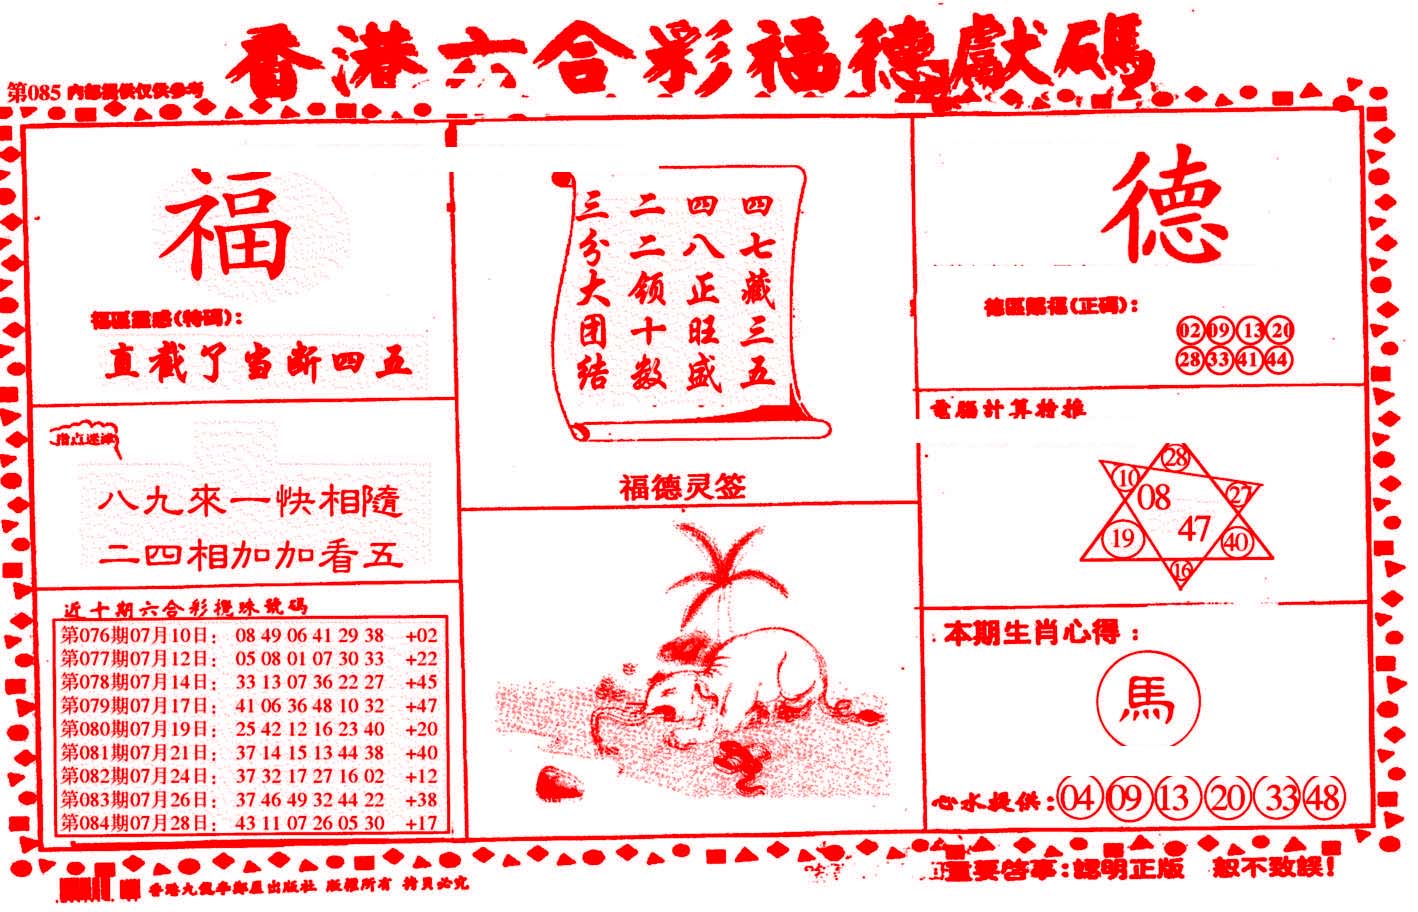 香港六合彩福德獻碼
第085 內部提供仅供参考
福
福區靈感(特碼)：
直截了当断四五
指点迷津
八九來一快相隨
二四相加加看五
近十期六合彩攪珠號碼
第076期07月10日： 08 49 06 41 29 38 +02
第077期07月12日： 05 08 01 07 30 33 +22
第078期07月14日： 33 13 07 36 22 27 +45
第079期07月17日： 41 06 36 48 10 32 +47
第080期07月19日： 25 42 12 16 23 40 +20
第081期07月21日： 37 14 15 13 44 38 +40
第082期07月24日： 37 32 17 27 16 02 +12
第083期07月26日： 37 46 49 32 44 22 +38
第084期07月28日： 43 11 07 26 05 30 +17
四七藏三五
四八正旺盛
二二领十数
三分大团结
福德灵签
德
德區賜福(正码)：
02 09 13 20
28 33 41 44
電腦計算特推
28
10 08 27
19 47 40
16
本期生肖心得：
馬
心水提供：04 09 13 20 33 48
香港九龍 出版社 版權所有 拷貝必究
重要啓事：認明正版 恕不致誤！